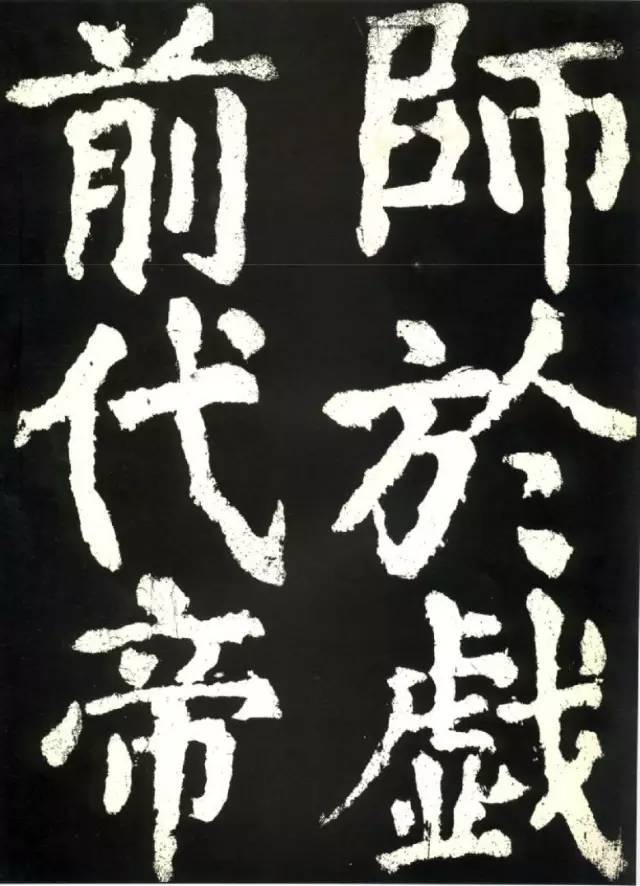 師於戯
前代帝